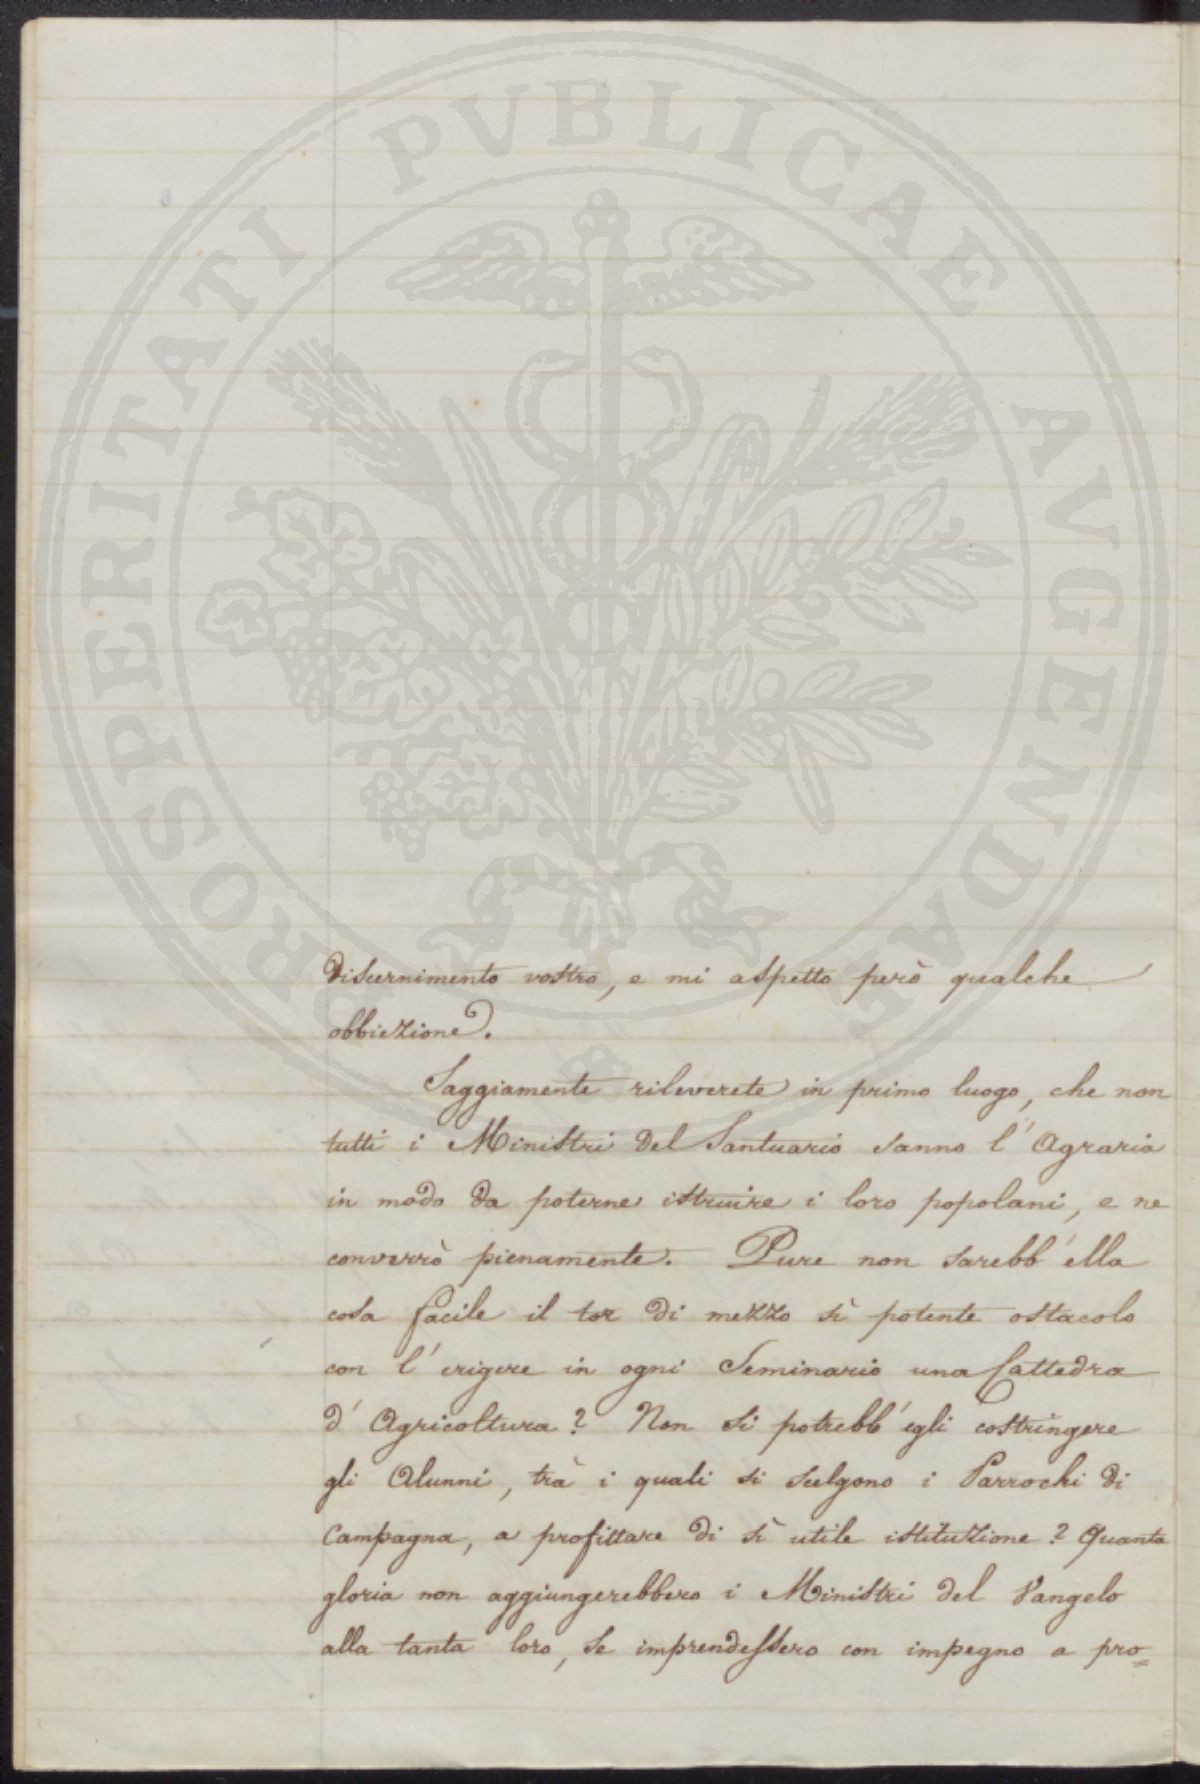 PROSPERITATI PVBLICAE AVGENDAE
discernimento vostro, e mi aspetto però qualche
obbiezione.
Saggiamente rileverete in primo luogo, che non
tutti i Ministri del Santuario sanno l'Agraria
in modo da poterne istruire i loro popolani, e ne
converrò pienamente. Pure non sarebb'ella
cosa facile il tor di mezzo sì potente ostacolo
con l'erigere in ogni Seminario una Cattedra
d'Agricoltura? Non si potrebb'egli costringere
gli Alunni, trà i quali si scelgono i Parrochi di
Campagna, a profittare di sì utile istituzione? Quanta
gloria non aggiungerebbero i Ministri del Vangelo
alla tanta loro, se imprendessero con impegno a pro=